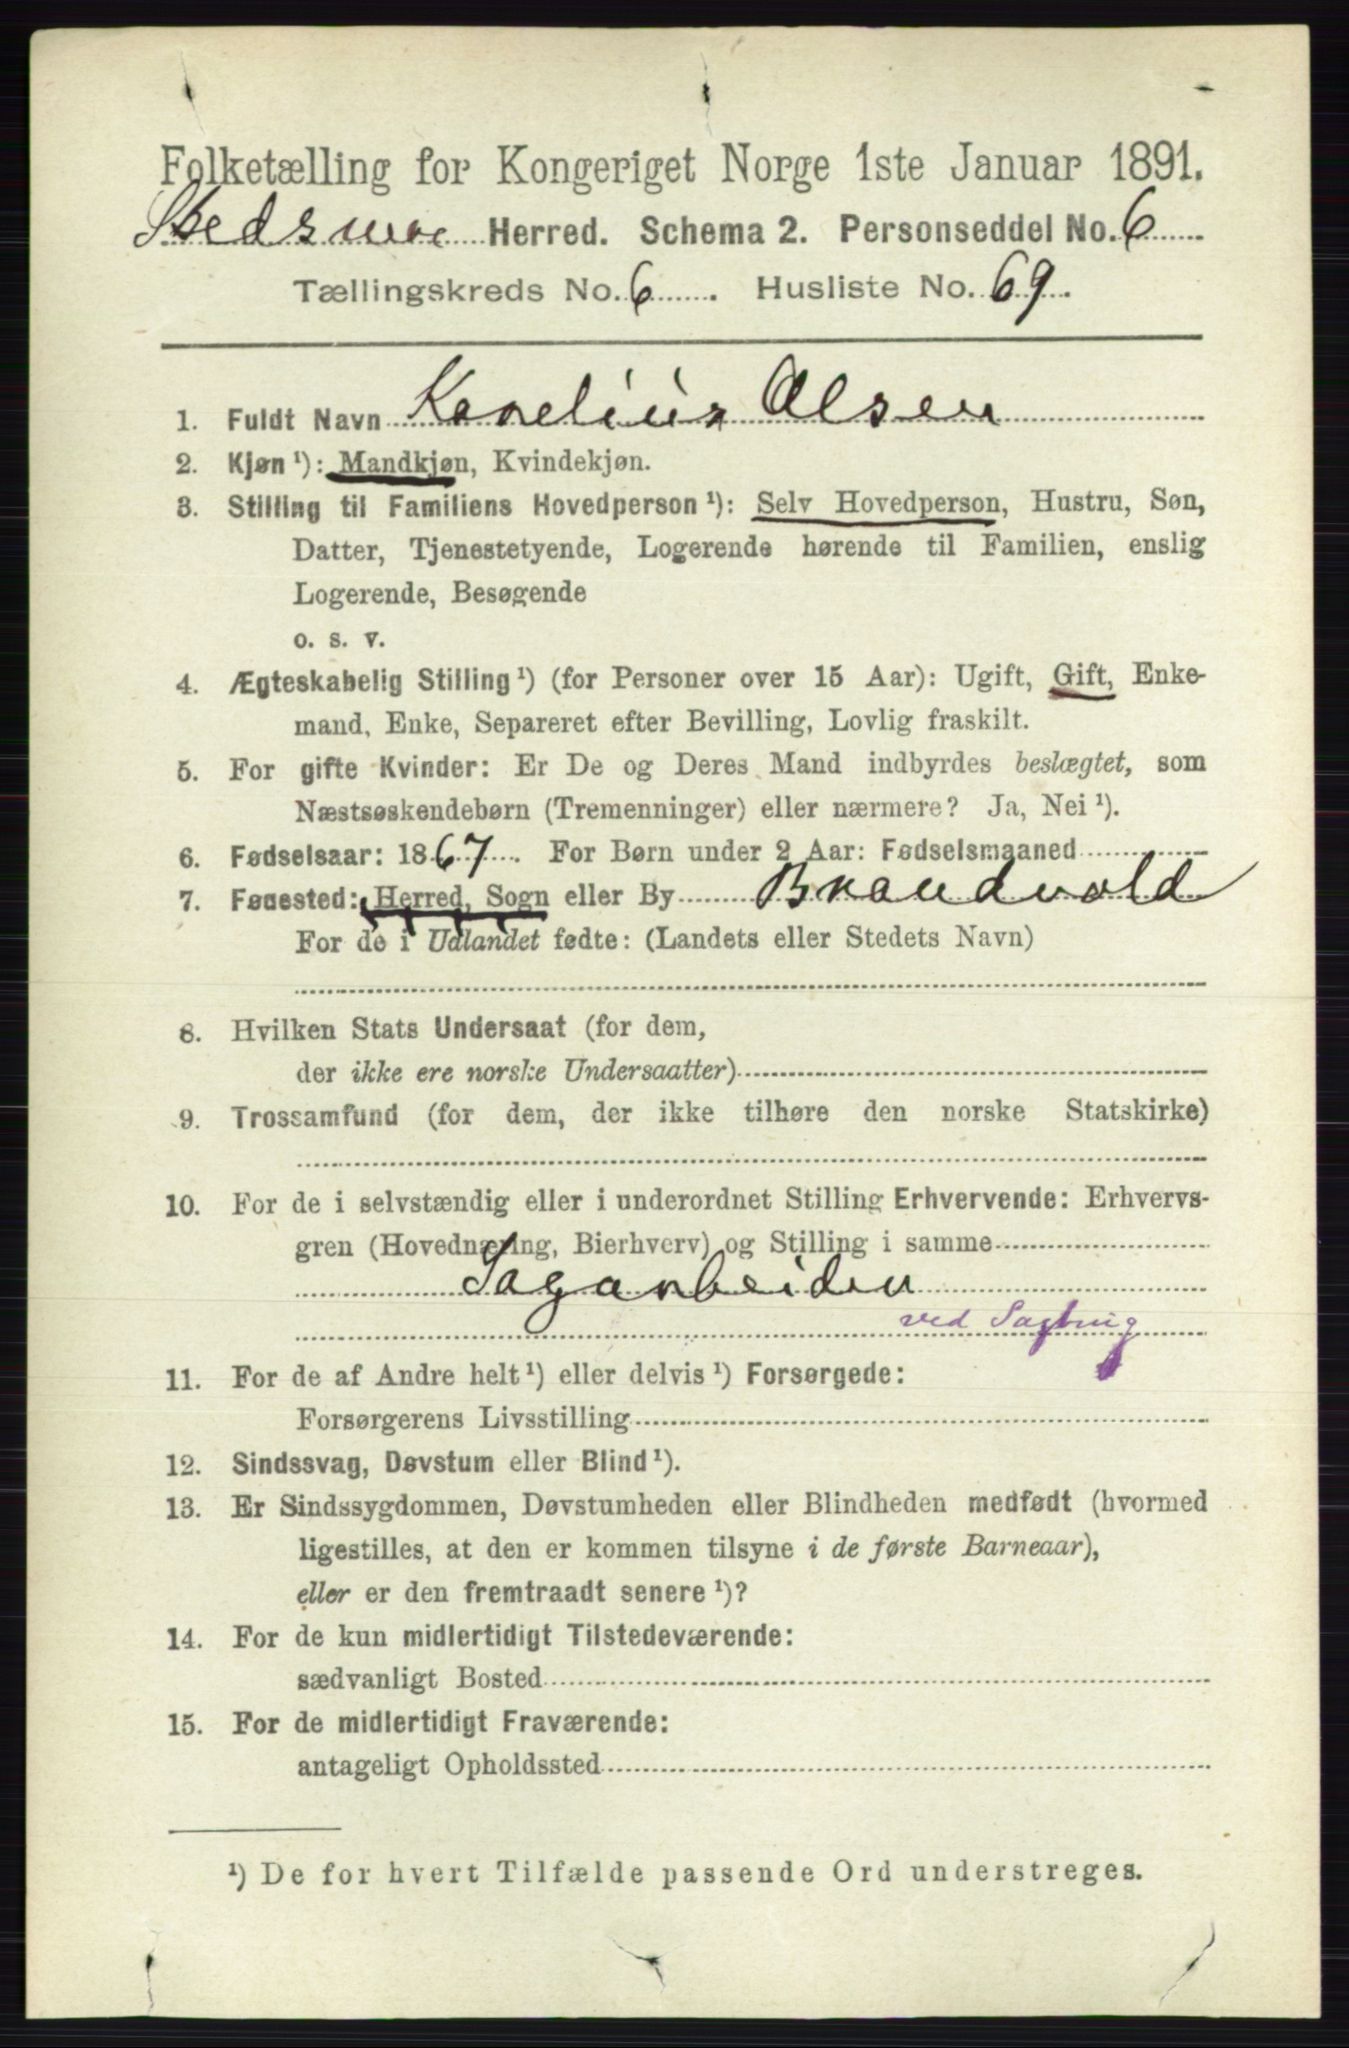 Folketælling for Kongeriget Norge 1ste Januar 1891.
Skedsmoe Herred. Schema 2. Personseddel No. 6
Tællingskreds No. 6. Husliste No. 69.
1. Fuldt Navn Karelius Olsen
2. Kjøn ¹): Mandkjøn, Kvindekjøn.
3. Stilling til Familiens Hovedperson ¹): Selv Hovedperson, Hustru, Søn,
Datter, Tjenestetyende, Logerende hørende til Familien, enslig
Logerende, Besøgende
o. s. v.
4. Ægteskabelig Stilling ¹) (for Personer over 15 Aar): Ugift, Gift, Enke-
mand, Enke, Separeret efter Bevilling, Lovlig fraskilt.
5. For gifte Kvinder: Er De og Deres Mand indbyrdes beslægtet, som
Næstsøskendebørn (Tremenninger) eller nærmere? Ja, Nei ¹).
6. Fødselsaar: 1867. For Børn under 2 Aar: Fødselsmaaned
7. Fødested: Herred, Sogn eller By Brandvold
For de i Udlandet fødte: (Landets eller Stedets Navn)
8. Hvilken Stats Undersaat (for dem,
der ikke ere norske Undersaatter)
9. Trossamfund (for dem, der ikke tilhøre den norske Statskirke)
10. For de i selvstændig eller i underordnet Stilling Erhvervende: Erhvervs-
gren (Hovednæring, Bierhverv) og Stilling i samme
Sagarbeider
ved Sagbrug
11. For de af Andre helt ¹) eller delvis ¹) Forsørgede:
Forsørgerens Livsstilling
12. Sindssvag, Døvstum eller Blind ¹).
13. Er Sindssygdommen, Døvstumheden eller Blindheden medfødt (hvormed
ligestilles, at den er kommen tilsyne i de første Barneaar),
eller er den fremtraadt senere ¹)?
14. For de kun midlertidigt Tilstedeværende:
sædvanligt Bosted
15. For de midlertidigt Fraværende:
antageligt Opholdssted
¹) De for hvert Tilfælde passende Ord understreges.